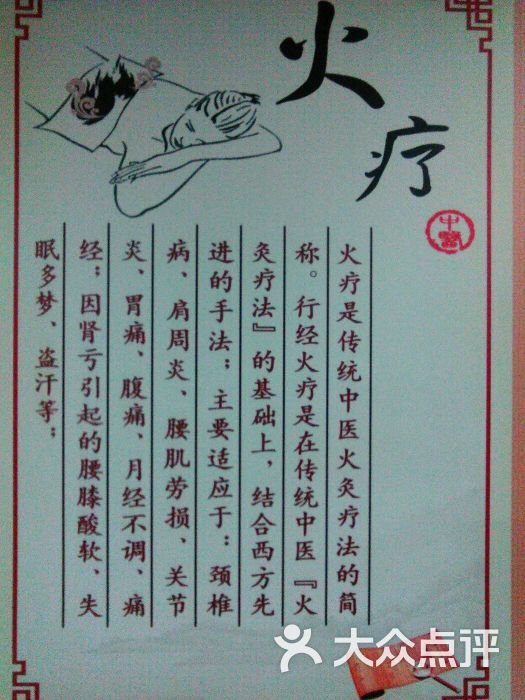 火疗
中醫
火疗是传统中医火灸疗法的简
称。行经火疗是在传统中医『火
灸疗法』的基础上，结合西方先
进的手法；主要适应于：颈椎
病、肩周炎、腰肌劳损、关节
炎、胃痛、腹痛、月经不调、痛
经；因肾亏引起的腰膝酸软、失
眠多梦、盗汗等；
大众点评